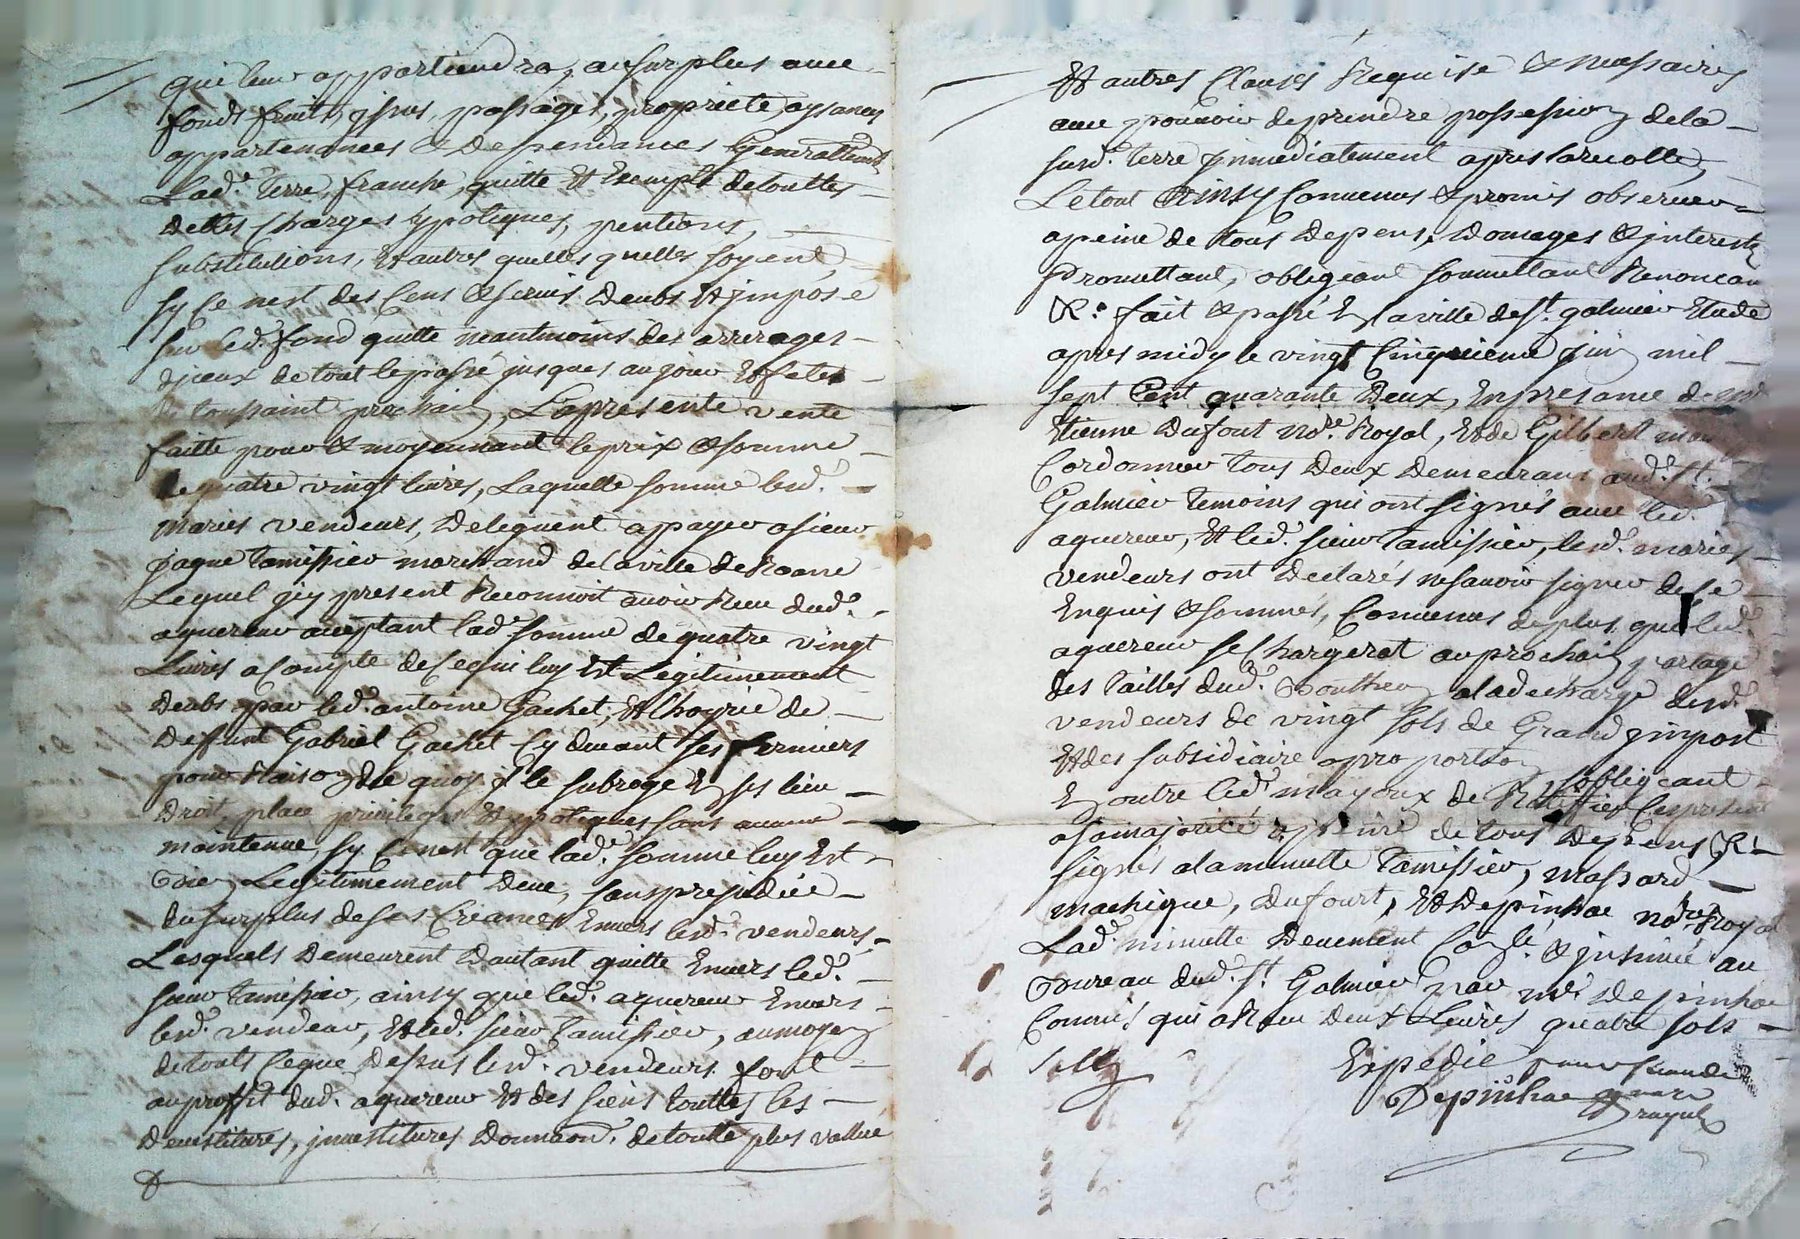 qui leur appartiendra, au surplus avec
fonds fruits, jssues, passages, propriete, aysances
appartenances & Dependances Generallement
Lad.e terre franche, quitte Et Exempte detouttes
dettes Charges ypoteques, pentions,
substitutions, Et autres quelles quelles soyent,
sy Ce nest des Cens & servis Deubs Et jmposé
sur led. fond quitte neantmoins des arrerages
djceux de tout lepassé jusques au jour Et feste
toussaint prochain, La presente vente
faitte pour & moyennant le prix & somme
de quatre vingt livres, Laquelle somme lesd.
mariés vendeurs, Deleguent a payer a sieur
jaque tamissier marchand de la ville de Roane
Lequel jcy present Reconnoit avoir Receu dud.
aquereur aceptant lad.e somme de quatre vingt
Livres a Compte de Cequi luy Est Legitimement
Deubs par led. antoine Gachet, Et lhoyrie de
Deffunt Gabriel Gachet Cy devant ses fermiers
pour Raison de quoy jl le subroge En ses lieu
Droit, place privileges Et ypoteques sans aucune
maintenue, sy Cenest que lad.e somme luy Est
Bien Legitimement Deue, sans prejudice
du surplus de ses Creances Envers lesd. vendeurs
Lesquels Demeurent Dautant quitte Envers led.
sieur tamissier, ainsy que led. aquereur Envers
lesd. vendeur, Et led. sieur tamissier, au moyen
de tout Ceque Dessus lesd. vendeurs font
au proffit dud. aquereur Et des siens touttes les
Devestitures, jnvestitures Donnaon. detoutte plus vallue
Et autres Clauses Requise & necessaires
avec pouvoir de prendre possession dela
susd. terre jmmediatement apres la recolte,
Le tout Ainsy Convenus & promis observer
a peine de tous Depens, Domages & jnterests
Promettant, obligeant soumettant Renoncant
&.e fait & passé En la ville de St. galmier Etude
apres midy le vingt Cinquieme juin mil
sept Cent quarante Deux, En presance de
Etienne Dufout no.re Royal, Et de Gilbert
Cordonnier tous Deux Demeurans aud. St.
Galmier temoins qui ont signés avec led.
aquereur, Et led. sieur tamissier, lesd. mariés
vendeurs ont Declarés ne savoir signer de Ce
Enquis & sommés, Convenus de plus que led.
aquereur se Chargerat au prochain partage
des tailles dud. Bouthéon a la decharge desd.
vendeurs de vingt sols de Grand jmpost
Et des subsidiaire a proportion sobligeant
En outre led. mayoux de Rattiffier Ces presentes
a sa majorité a peine de tous Depens &.
signés a la minutte tamissier, massard
machique, Dufourt, Et Depinhac no.re Royal
Lad.e minutte Deuement Con.lé & jnsinué au
Bureau dud. St. Galmier par m.e Depinhac
Commis qui a Receu Deux Livres quatre sols
Expedié
Depinhac